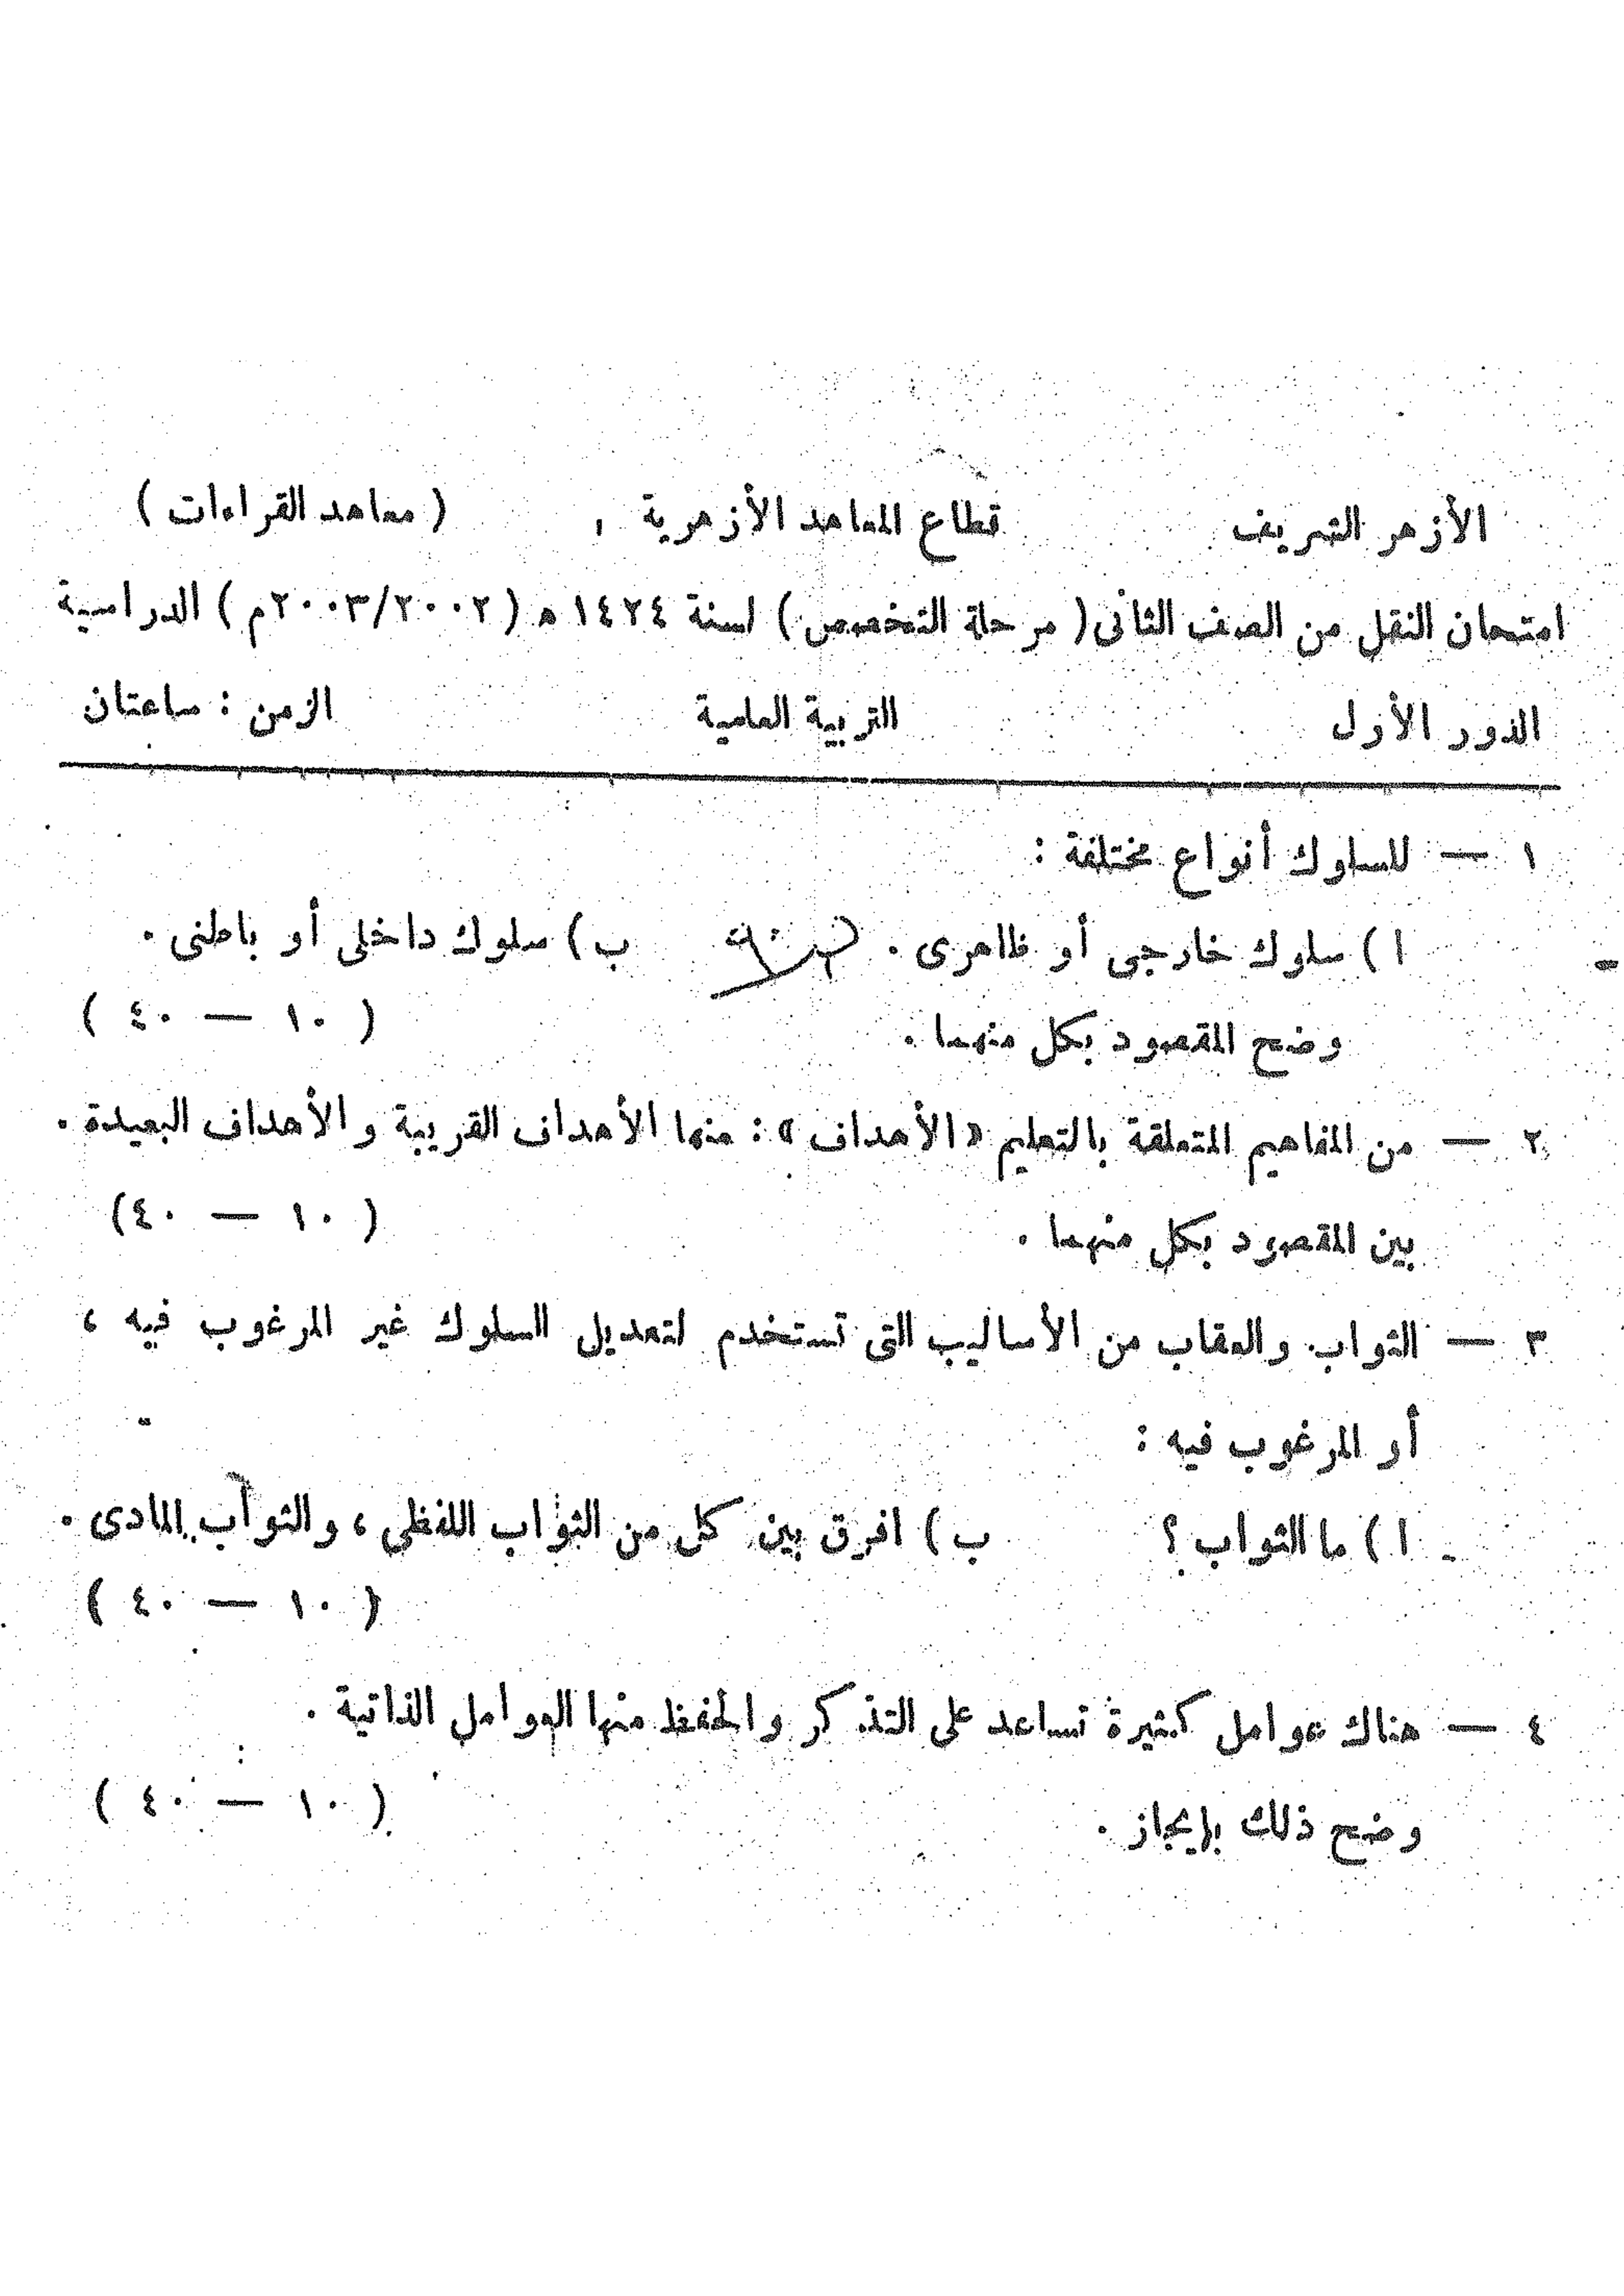 الأزهر الشريف قطاع المعاهد الأزهرية ( معاهد القراءات )
امتحان النقل من الصف الثانى ( مرحلة التخصص ) لسنة ١٤٢٤ ه ( ٢٠٠٣/٢٠٠٢م ) الدراسية
الدور الأول التربية العلمية الزمن : ساعتان
١ — للسلوك أنواع مختلفة :
ا ) سلوك خارجى أو ظاهرى . ب ) سلوك داخلى أو باطنى .
وضح المقصود بكل منهما . ( ١٠ — ٤٠ )
٢ — من المفاهيم المتعلقة بالتعليم « الأهداف » : منها الأهداف القريبة والأهداف البعيدة .
بين المقصود بكل منهما . ( ١٠ — ٤٠ )
٣ — الثواب والعقاب من الأساليب التى تستخدم لتعديل السلوك غير المرغوب فيه ،
أو المرغوب فيه :
ا ) ما الثواب ؟ ب ) افرق بين كل من الثواب اللفظى ، والثواب المادى .
( ١٠ — ٤٠ )
٤ — هناك عوامل كثيرة تساعد على التذكر والحفظ منها العوامل الذاتية .
وضح ذلك بإيجاز . ( ١٠ — ٤٠ )